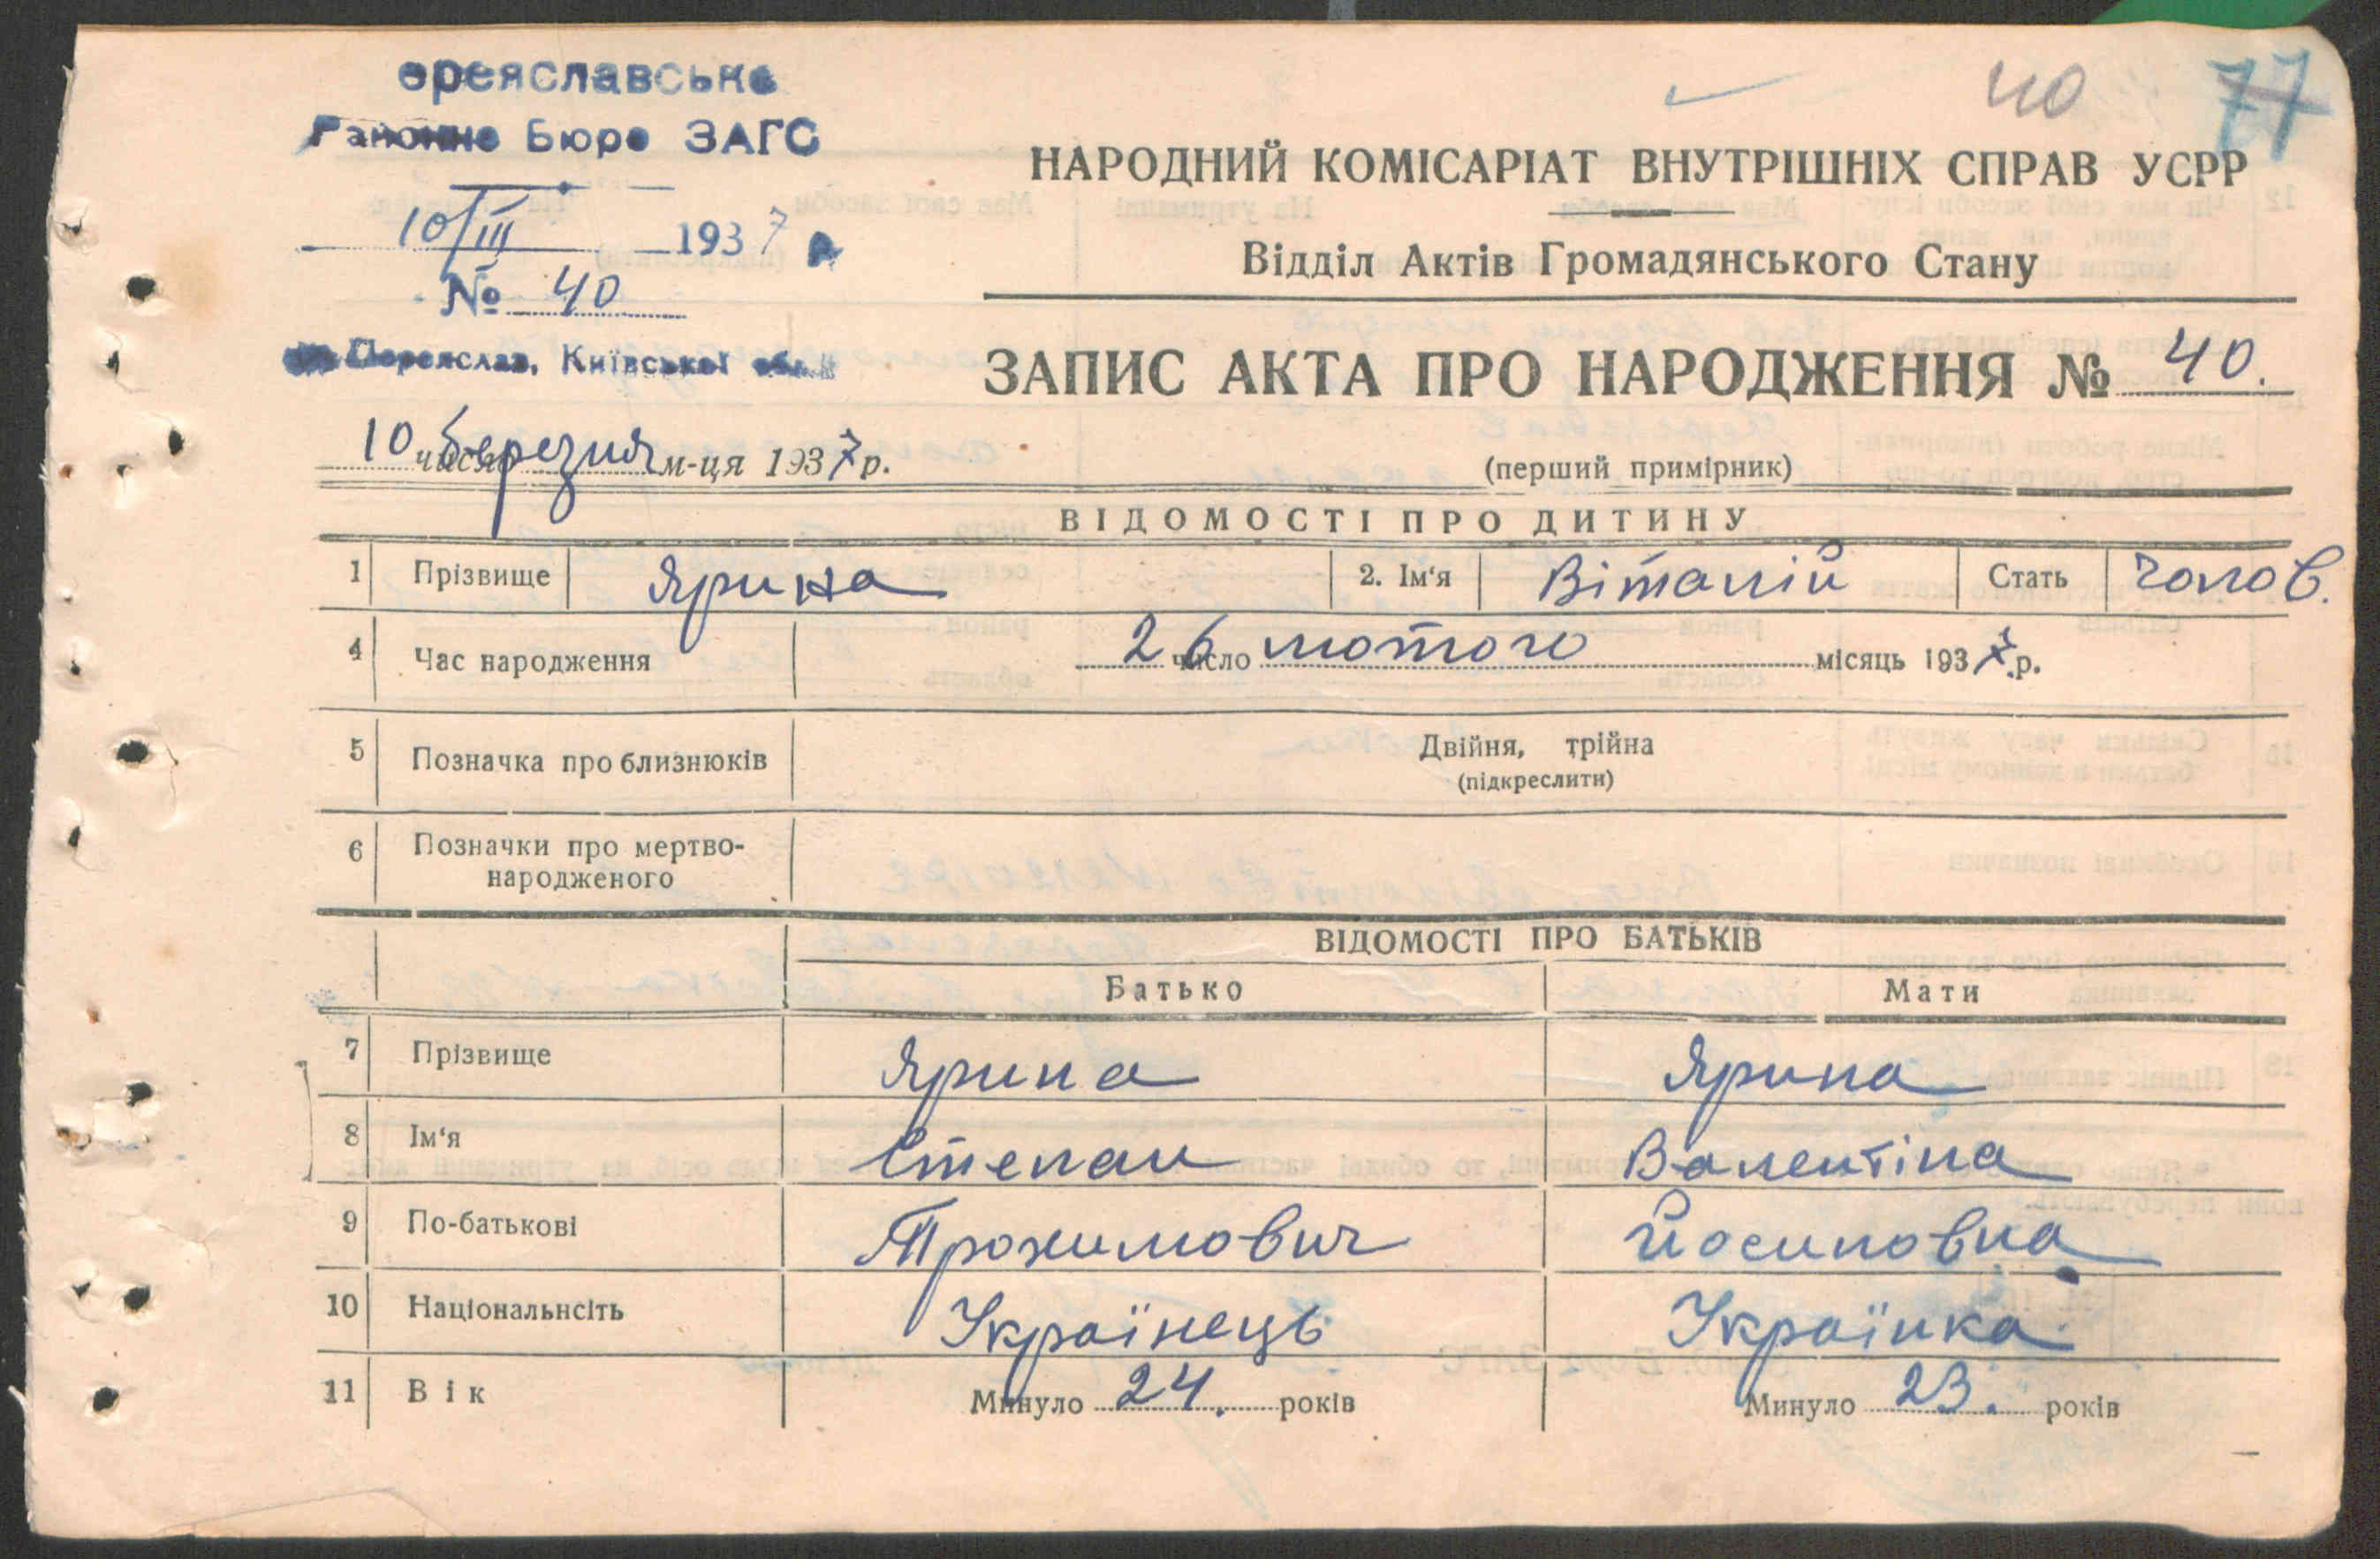 ереяславське
40 77
Районне Бюро ЗАГС
НАРОДНИЙ КОМІСАРІАТ ВНУТРІШНІХ СПРАВ УСРР
10/III 1937
Відділ Актів Громадянського Стану
№ 40
Переяслав, Київської обл.
ЗАПИС АКТА ПРО НАРОДЖЕННЯ № 40.
10 число березня м-ця 1937 р.
(перший примірник)
ВІДОМОСТІ ПРО ДИТИНУ
1 Прізвище Ярина 2. Ім'я Віталій Стать чолов.
4 Час народження 26 число лютого місяць 1937 р.
5 Позначка про близнюків Двійня, трійна
(підкреслити)
6 Позначки про мертво-
народженого
ВІДОМОСТІ ПРО БАТЬКІВ
Батько Мати
7 Прізвище Ярина Ярина
8 Ім'я Степан Валентіна
9 По-батькові Трохимович Йосиповна
10 Національнсіть Українець Українка
11 Вік Минуло 24. років Минуло 23. років